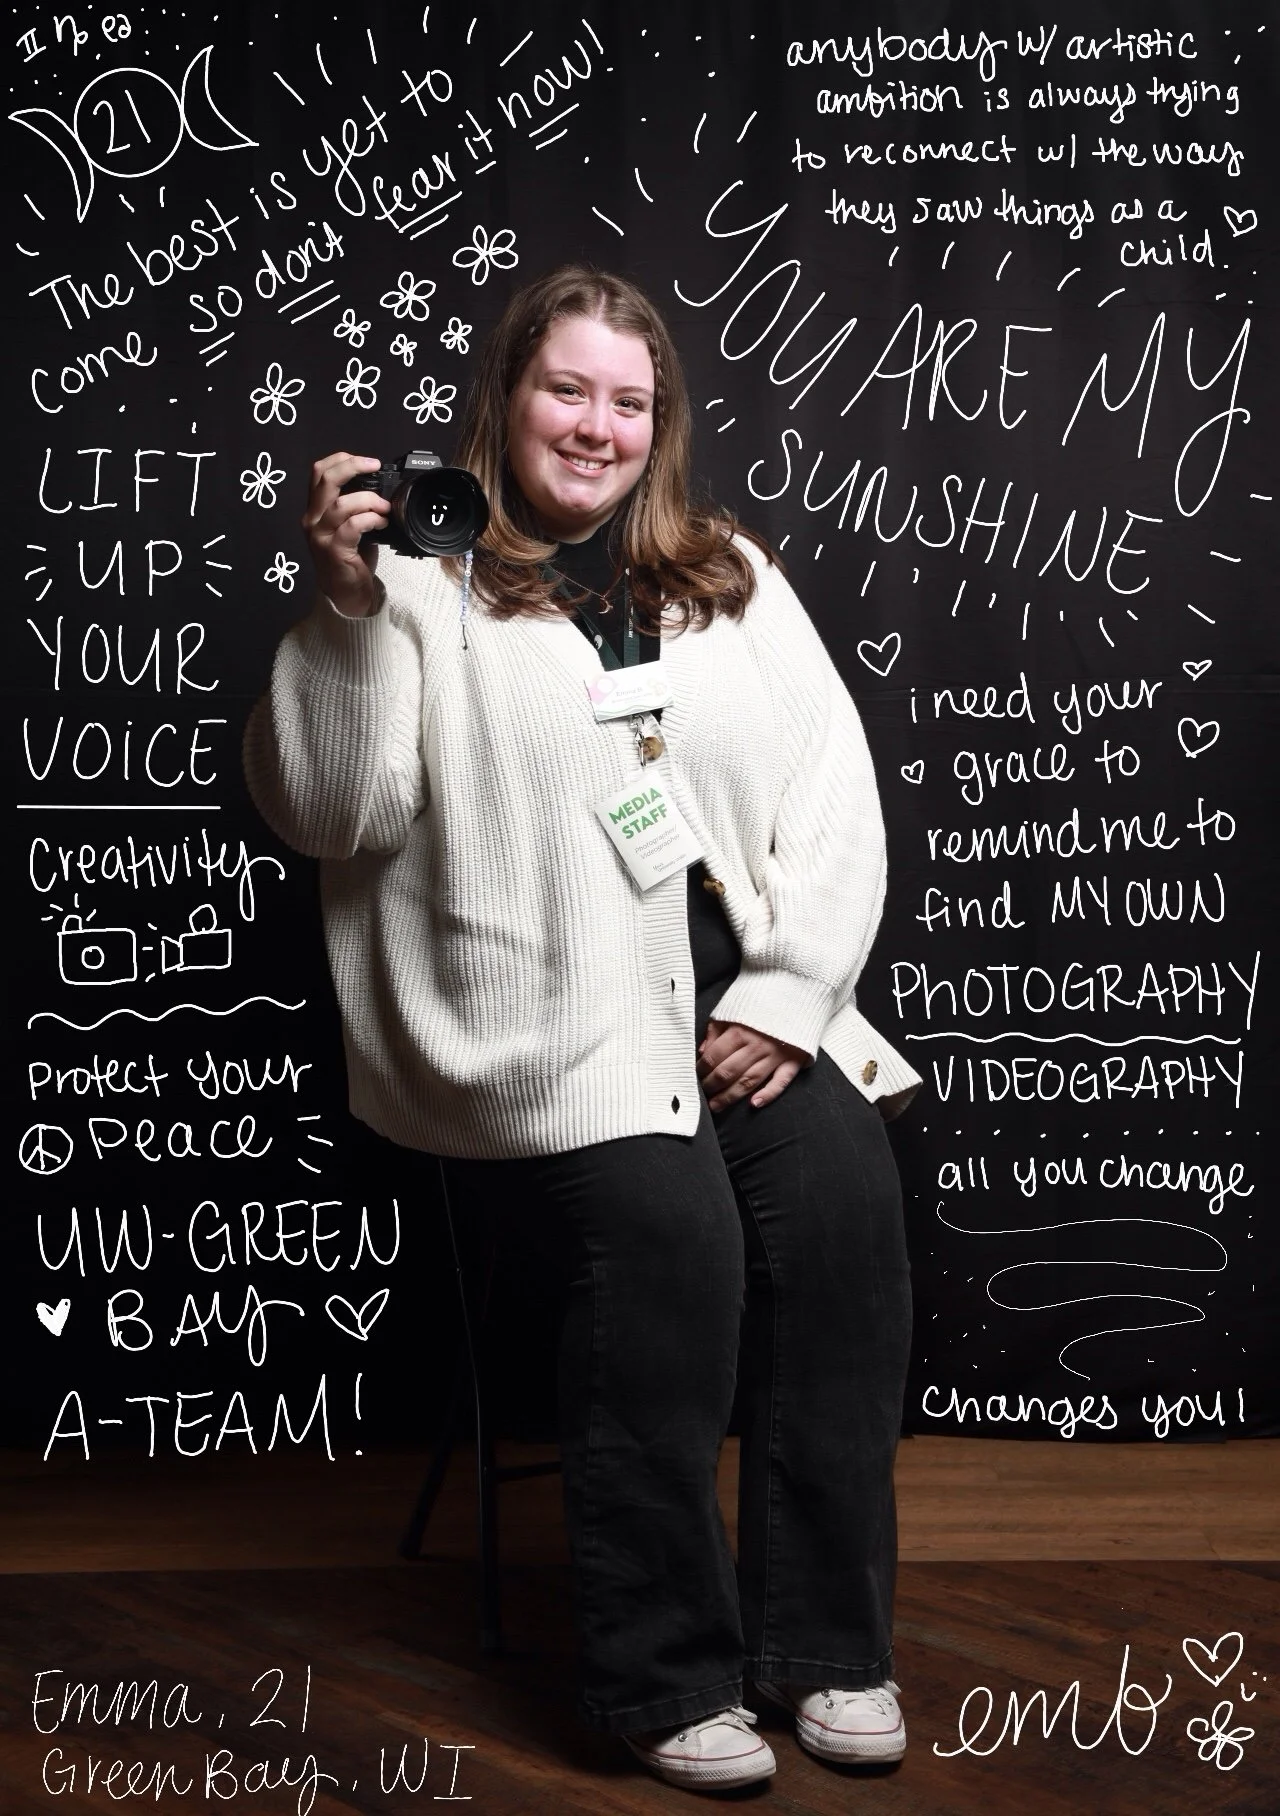 II ♏ ♋
21
The best is yet to
come so don't fear it now!
anybody w/ artistic
ambition is always trying
to reconnect w/ the way
they saw things as a
child.
YOU ARE MY
SUNSHINE
LIFT
UP
YOUR
VOICE
Creativity
protect your
peace
UW-GREEN
BAY
A-TEAM!
SONY
Emma
MEDIA
STAFF
Photographer
Videographer
i need your
grace to
remind me to
find MY OWN
PHOTOGRAPHY
VIDEOGRAPHY
all you change
changes you!
Emma, 21
Green Bay, WI
emb